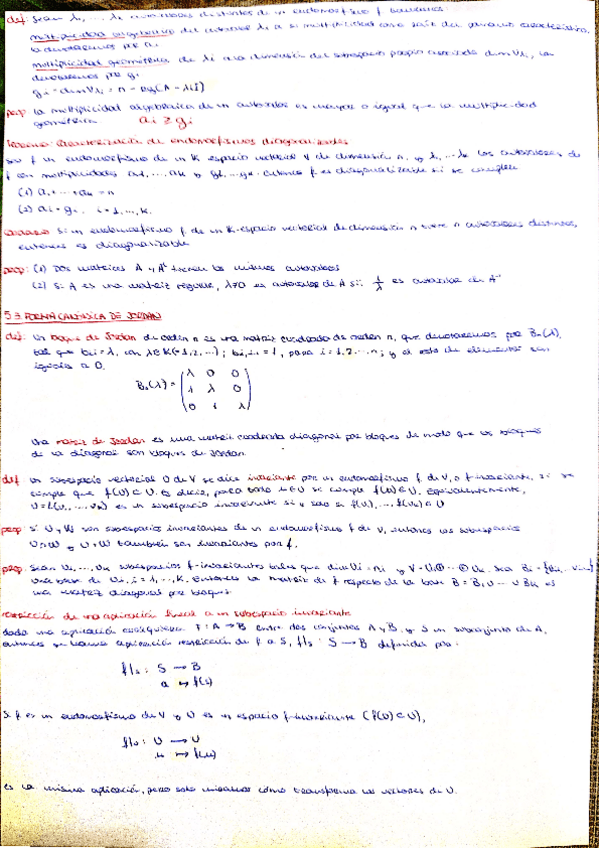 def: Sean λ1, ..., λk autovalores distintos de un endomorfismo f. Llamamos
multiplicidad algebraica del autovalor λi a su multiplicidad como raíz del polinomio característico,
la denotaremos por ai
multiplicidad geométrica de λi a la dimensión del subespacio propio asociado dim Vλi, la
denotaremos por gi
gi = dim Vλi = n - rg(A - λiI)
prop: la multiplicidad algebraica de un autovalor es mayor o igual que la multiplicidad
geométrica. ai ≥ gi
Teorema: Caracterización de endomorfismos diagonalizables
Sea f un endomorfismo de un K espacio vectorial V de dimensión n, y λ1, ... λk los autovalores de
f con multiplicidades a1, ... ak y g1, ... gk. entonces f es diagonalizable si se cumple
(1) a1 + ... + ak = n
(2) ai = gi, i = 1, ..., k.
Si un endomorfismo f de un K-espacio vectorial de dimensión n tiene n autovalores distintos,
entonces es diagonalizable
prop: (1) Dos matrices A y Aᵗ tienen los mismos autovalores
(2) Si A es una matriz regular, λ≠0 es autovalor de A si 1/λ es autovalor de A⁻¹
5.3 FORMA CANÓNICA DE JORDAN
def: Un bloque de Jordan de orden n es una matriz cuadrada de orden n, que denotaremos por Bn(λ),
tal que bii = λ, con λ∈K ; = 1, para i = 1, 2, ... n; y el resto de elementos son
iguales a 0.
Bn(λ) = ( λ 0 0
1 λ 0
0 1 λ )
Una matriz de Jordan es una matriz cuadrada diagonal por bloques de modo que los bloques
de la diagonal son bloques de Jordan.
def Un subespacio vectorial U de V se dice invariante por un endomorfismo f de V, o f-invariante, si se
cumple que f(U) ⊂ U. Es decir, para todo u∈U se cumple f(u)∈U. Equivalentemente,
U = L(v1, ... vn) es un subespacio invariante si y solo si f(v1), ..., f(vn) ∈ U
prop: Si U y W son subespacios invariantes de un endomorfismo f de V, entonces los subespacios
U∩W y U+W también son invariantes por f.
prop: Sean U1, ... Uk subespacios f-invariantes tales que dim Ui = ni y V = U1⊕ ... ⊕ Uk. Sea Bi =
una base de Ui, i = 1, ..., k. Entonces la matriz de f respecto de la base B = B1 ∪ ... ∪ Bk es
una matriz diagonal por bloques.
restricción de una aplicación lineal a un subespacio invariante
dada una aplicación cualquiera f: A → B entre dos conjuntos A y B, y S un subconjunto de A,
entonces se llama aplicación restricción de f a S, f|s : S → B definida por:
f|s : S → B
a ↦ f(s)
Si f es un endomorfismo de V y U es un espacio f-invariante (f(U) ⊂ U),
f|u : U → U
u ↦ f(u)
es la misma aplicación, pero solo miramos cómo transforma los vectores de U.